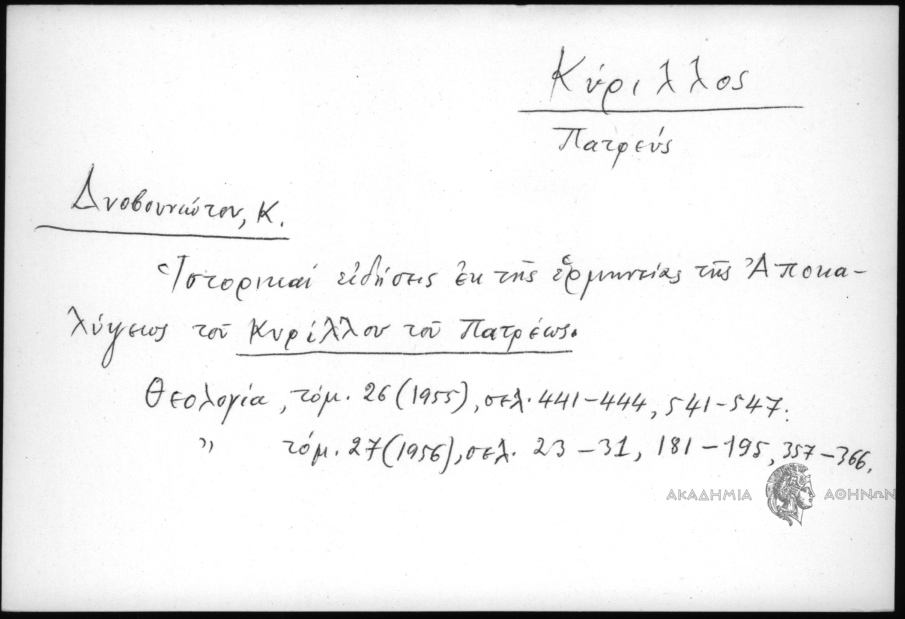 Κύριλλος
Πατρεύς
Δυοβουνιώτου, Κ.
Ἱστορικαί εἰδήσεις ἐκ τῆς ἑρμηνείας τῆς Ἀποκα-
λύψεως τοῦ Κυρίλλου τοῦ Πατρέως.
Θεολογία, τόμ. 26 (1955), σελ. 441-444, 541-547.
" τόμ. 27 (1956), σελ. 23-31, 181-195, 357-366.
ΑΚΑΔΗΜΙΑ ΑΘΗΝΩΝ